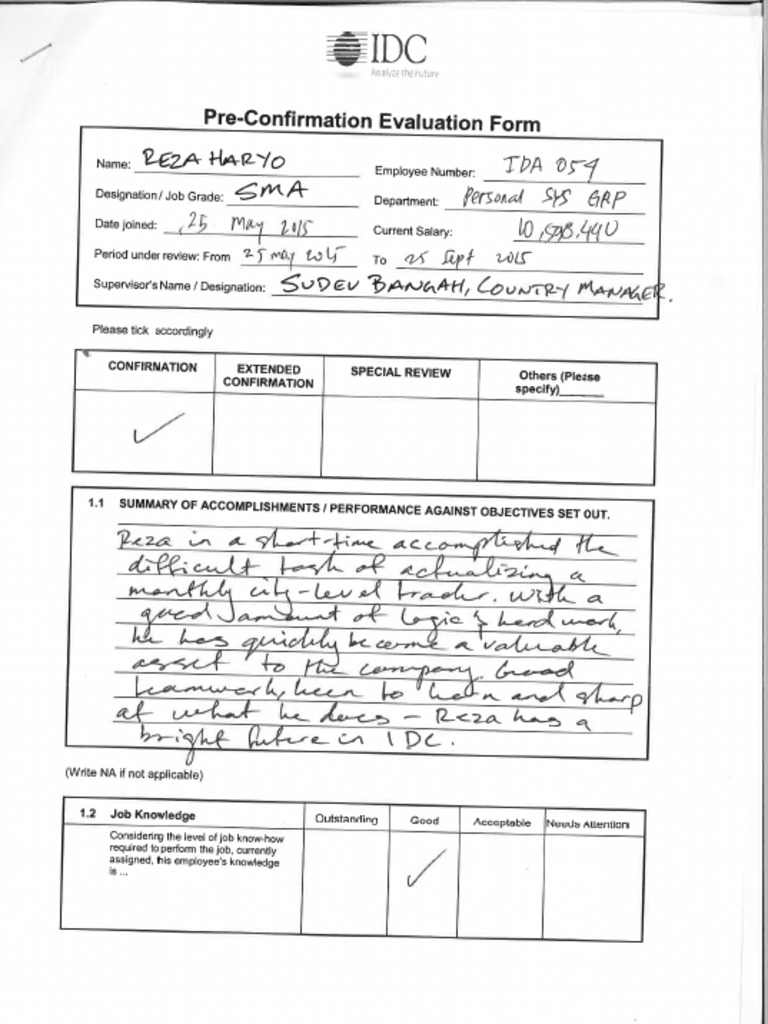 IDC
Analyze the Future
Pre-Confirmation Evaluation Form
Name: REZA HARYO
Employee Number: IDA 054
Designation / Job Grade: SMA
Department: Personal SYS GRP
Date joined: 25 May 2015
Current Salary: 10,598,440
Period under review: From 25 May 2015 To 25 Sept 2015
Supervisor's Name / Designation: SUDEV BANGAH, COUNTRY MANAGER.
Please tick accordingly
CONFIRMATION
EXTENDED
CONFIRMATION
SPECIAL REVIEW
Others (Please
specify)______
1.1 SUMMARY OF ACCOMPLISHMENTS / PERFORMANCE AGAINST OBJECTIVES SET OUT.
Reza in a short-time accomplished the
difficult task of actualizing a
monthly city-level tracker. With a
good amount of logic & hard work,
he has quickly become a valuable
asset to the company. Good
teamwork, keen to learn and sharp
at what he does - Reza has a
bright future in IDC.
(Write NA if not applicable)
1.2 Job Knowledge
Outstanding Good Acceptable Needs Attention
Considering the level of job know-how
required to perform the job, currently
assigned, this employee's knowledge
is ...